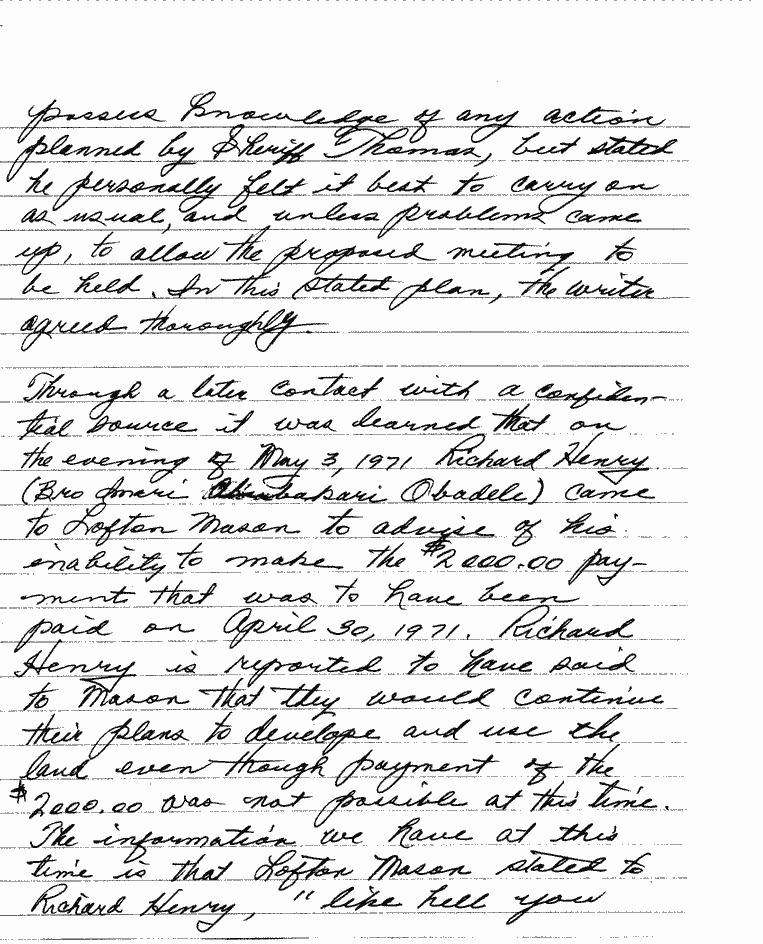 possess knowledge of any action
planned by Sheriff Thomas, but stated
he personally felt it best to carry on
as usual, and unless problems came
up, to allow the proposed meeting to
be held. In this stated plan, the writer
agreed thoroughly.
Through a later contact with a confiden-
tial source it was learned that on
the evening of May 3, 1971 Richard Henry
(Bro Imari Obadele) came
to Lofton Mason to advise of his
inability to make the $2000.00 pay-
ment that was to have been
paid on April 30, 1971. Richard
Henry is reported to have said
to Mason that they would continue
their plans to develope and use the
land even though payment of the
$2000.00 was not possible at this time.
The information we have at this
time is that Lofton Mason stated to
Richard Henry, "like hell you